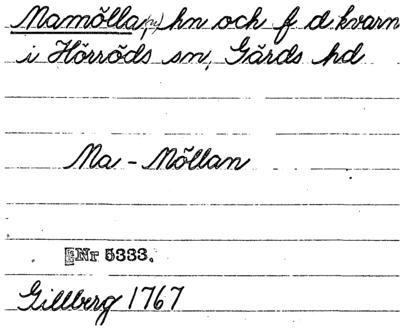 Mamölla(n) hn och f d kvarn
i Hörröds sn, Gärds hd
Ma - Möllan
Nr 5333.
Gillberg 1767